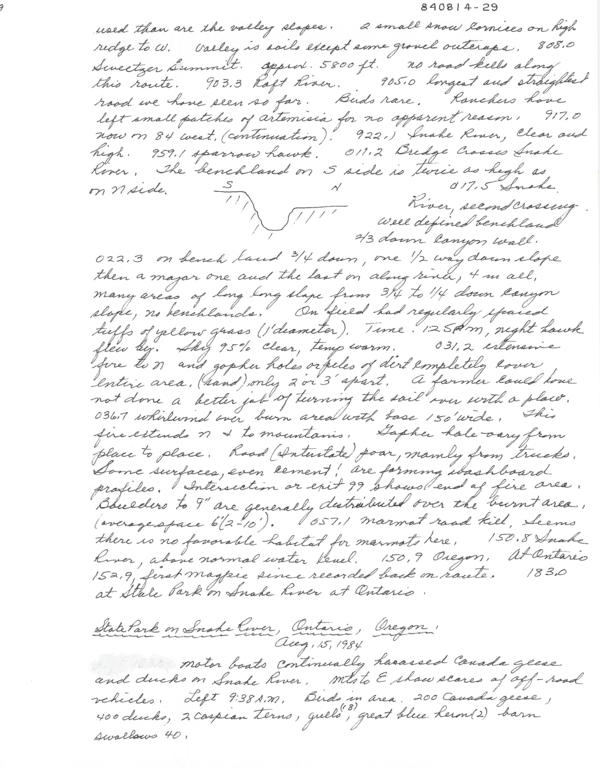 840814-29
used than are the valley slopes. A small snow cornices on high
ridge to W. Valley is soils except some gravel outcrops. 808.0
Sweetzer Summit. approx. 5800 ft. no road kills along
this route. 903.3 Raft River. 905.0 longest and straightest
road we have seen so far. Birds rare. Ranchers have
left small patches of artemisia for no apparent reason. 917.0
now on 84 west. (continuation). 922.1 Snake River, clear and
high. 959.1 sparrow hawk. 011.2 Bridge Crosses Snake
River. The benchland on S side is twice as high as
on N side. S N 017.5 Snake
River, second crossing.
Well defined benchland
2/3 down canyon wall.
022.3 on bench land 3/4 down, one 1/2 way down slope
then a major one and the last on along river, 4 in all,
many areas of long long slope from 3/4 to 1/4 down canyon
slope, no benchlands. On field had regularly spaced
tuffs of yellow grass (1' diameter). Time 125 PM, night hawk
flew by. Sky 95% clear, temp warm. 031.2 extensive
fire to N and gopher holes or piles of dirt completely cover
entire area. (sand) only 2 or 3' apart. A farmer could have
not done a better job of turning the soil over with a plow.
036.7 whirlwind over burn area with base 150' wide. This
fire extends N & to mountains. Gopher hole vary from
place to place. Road (Interstate) poor, mainly from trucks.
Some surfaces, even cement! are forming washboard
profiles. Intersection or exit 99 shows end of fire area.
Boulders to 9" are generally distributed over the burnt area,
(average space 6' (2-10'). 057.1 marmot road kill, seems
there is no favorable habitat for marmots here. 150.8 Snake
River, above normal water level. 150.9 Oregon. At Ontario
152.9, first magpie since recorded back on route. 183.0
at State Park on Snake River at Ontario.
State Park on Snake River, Ontario, Oregon.
Aug, 15, 1984
motor boats continually harassed Canada geese
and ducks on Snake River. Mts to E show scares of off-road
vehicles. Left 9:38 A.M. Birds in area. 200 Canada geese,
400 ducks, 2 caspian terns, gulls (18), great blue heron (2) barn
swallows 40.